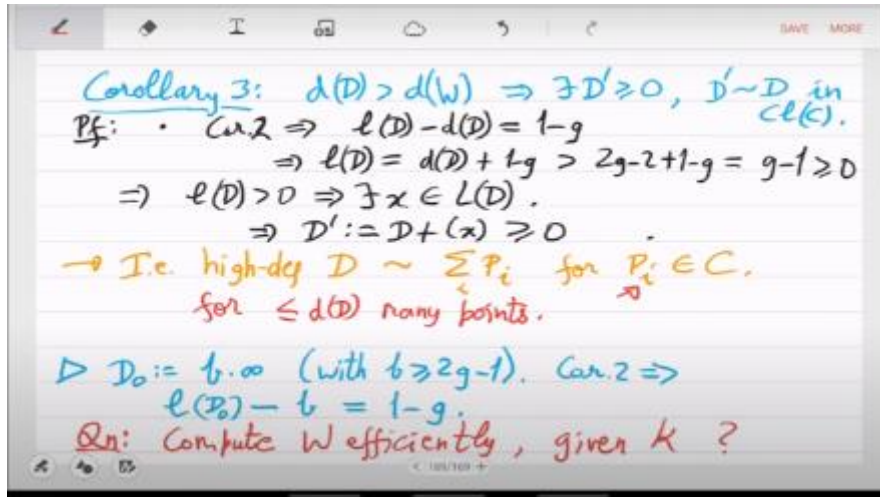 SAVE MORE
Corollary 3: d(D) > d(W) ⇒ ∃D'≥0, D'~D in Cl(C).
Pf: · Cor.2 ⇒ l(D)-d(D) = 1-g
⇒ l(D) = d(D) + 1-g > 2g-2+1-g = g-1 ≥ 0
⇒ l(D)>0 ⇒ ∃x ∈ L(D).
⇒ D' := D+(x) ≥ 0 .
→ I.e. high-deg D ~ Σ P_i for P_i ∈ C.
for ≤ d(D) many points.
▷ D_0 := b·∞ (with b≥2g-1). Cor.2 ⇒
l(D_0) - b = 1-g.
Qn: Compute W efficiently, given K ?
< 169/169 +